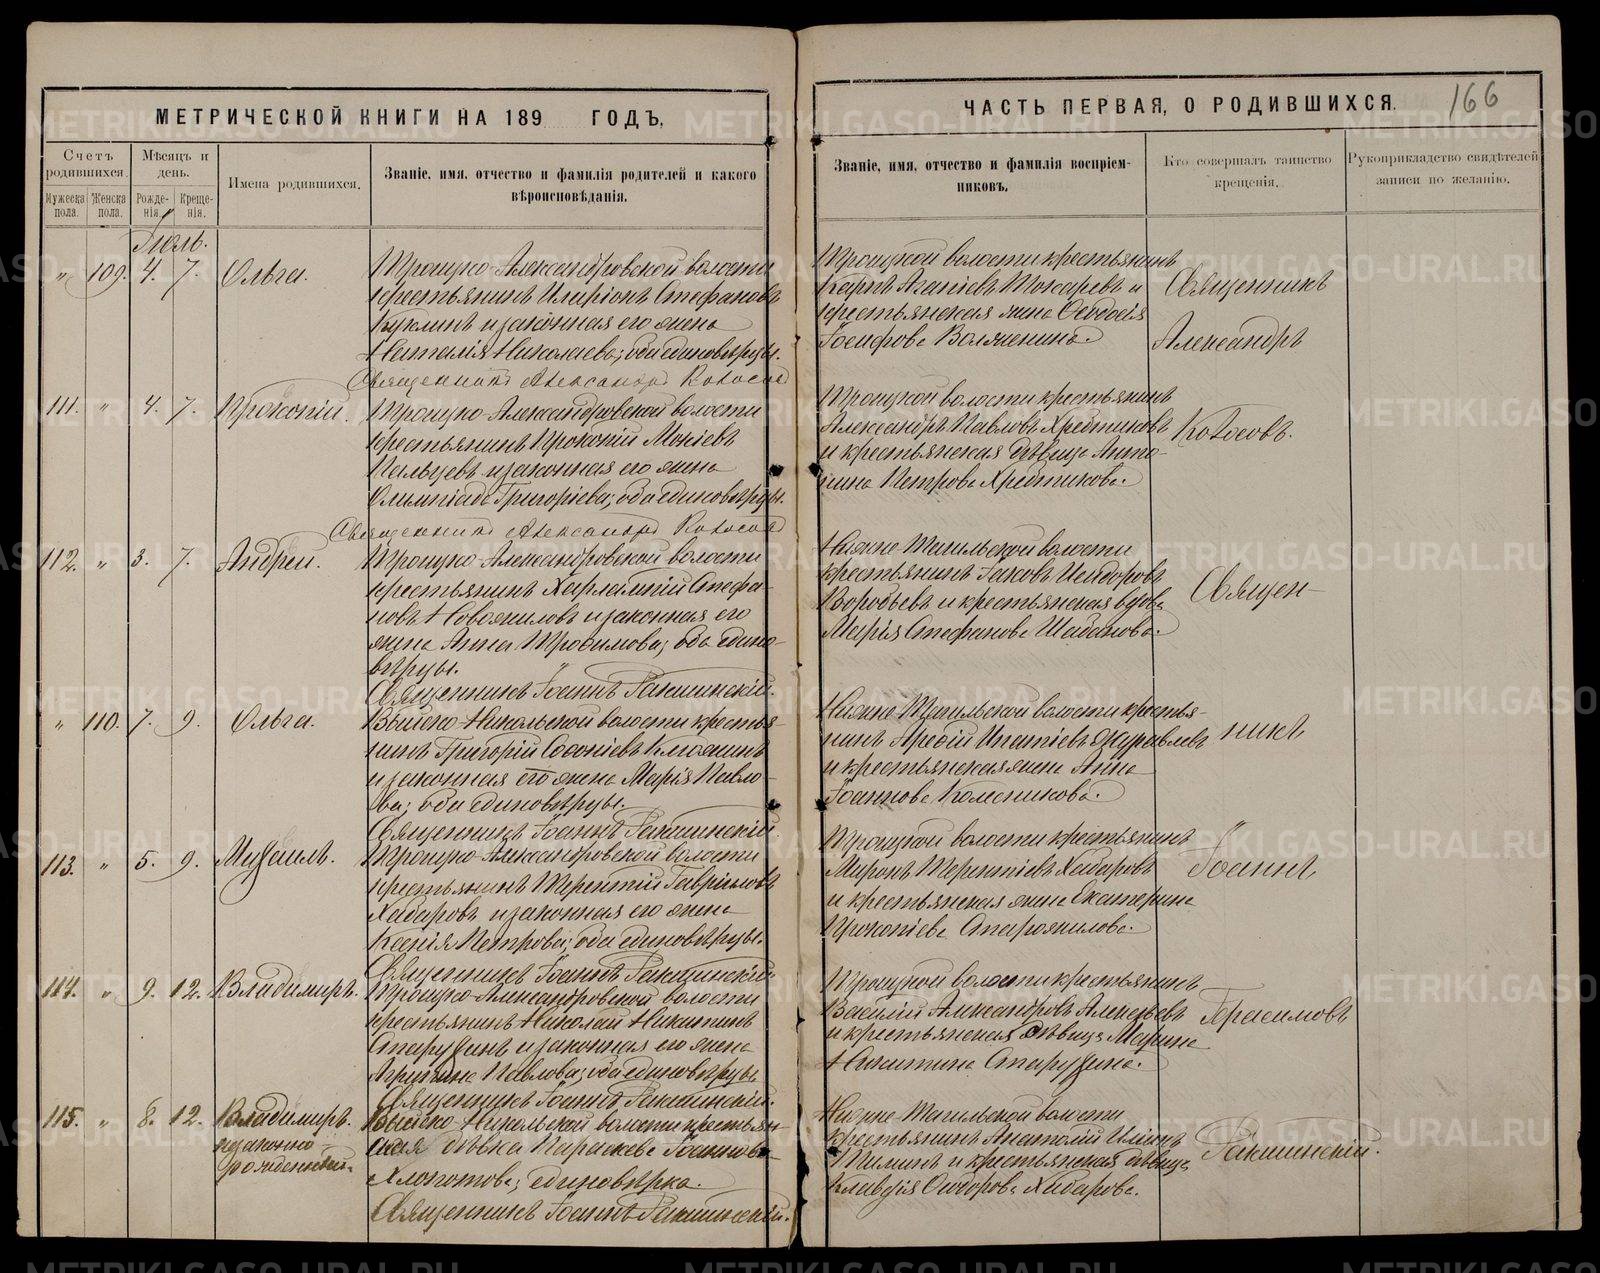 МЕТРИЧЕСКОЙ КНИГИ НА 189 ГОДЪ,
Счетъ родившихся.
Мѣсяцъ и день.
Имена родившихся.
Званіе, имя, отчество и фамилія родителей и какого
вѣроисповѣданія.
Мужеска пола.
Женска пола.
Рожде-нія.
Креще-нія.
Іюль.
" 109. 4. 7. Ольга.
Троицко-Александровской волости
крестьянинъ Иларіонъ Стефановъ
Куклинъ и законная его жена
Наталія Николаева; оба единовѣрцы.
Священникъ Александръ
111. " 4. 7. Прокопій.
Троицко-Александровской волости
крестьянинъ Прокопій
Пальцевъ и законная его жена
Олимпіада Григоріева; оба единовѣрцы.
Священникъ Александръ
112. " 3. 7. Андрей.
Троицко-Александровской волости
крестьянинъ Харлампій Стефа-
новъ Новожиловъ и законная его
жена Анна Трофимова; оба едино-
вѣрцы.
Священникъ Іоаннъ
" 110. 7. 9. Ольга.
Выйско-Никольской волости крестья-
нинъ Григорій Клюжинъ
и законная его жена Марія Павло-
ва; оба единовѣрцы.
Священникъ Іоаннъ
113. " 5. 9. Михаилъ.
Троицко-Александровской волости
крестьянинъ Терентій Гавріиловъ
Хабаровъ и законная его жена
Ксенія Петрова; оба единовѣрцы.
Священникъ Іоаннъ
114. " 9. 12. Владимиръ.
Троицко-Александровской волости
крестьянинъ Николай Никитинъ
Старухинъ и законная его жена
Агрипина Павлова; оба единовѣрцы
Священникъ Іоаннъ
115. " 8. 12. Владимиръ.
незаконно-
рожденный.
Выйско-Никольской волости крестьян-
ская дѣвка Параскева Іоаннова
Хлопотова; единовѣрка.
Священникъ Іоаннъ
ЧАСТЬ ПЕРВАЯ, О РОДИВШИХСЯ.
166
Званіе, имя, отчество и фамилія воспріем-
никовъ.
Кто совершалъ таинство
крещенія.
Рукоприкладство свидѣтелей
записи по желанію.
Троицкой волости крестьянинъ
Карпъ Ананіевъ Токаревъ и
крестьянская жена Ѳеодосія
Іосифова Волженина.
Священникъ
Александръ
Троицкой волости крестьянинъ
Александръ Павловъ Хребтиковъ
и крестьянская дѣвица Анто-
нина Петрова Хребтикова.
Нижне-Тагильской волости
крестьянинъ Іаковъ Исидоровъ
Воробьевъ и крестьянская вдова
Марія Стефанова Шабанова.
Священ-
Нижне-Тагильской волости крестья-
нинъ Арефій Игнатіевъ Журавлевъ
и крестьянская жена Анна
Іоаннова Колесникова.
никъ
Троицкой волости крестьянинъ
Миронъ Терентіевъ Хабаровъ
и крестьянская жена Екатерина
Прокопіева Старожилова.
Іоаннъ
Троицкой волости крестьянинъ
Василій Александровъ Алексѣевъ
и крестьянская дѣвица Марина
Никитина Старухина.
Герасимовъ
Нижне-Тагильской волости
крестьянинъ Анатолій Иліинъ
и крестьянская дѣвица
Клавдія Ѳеодорова Хабарова.
METRIKI.GASO-URAL.RU